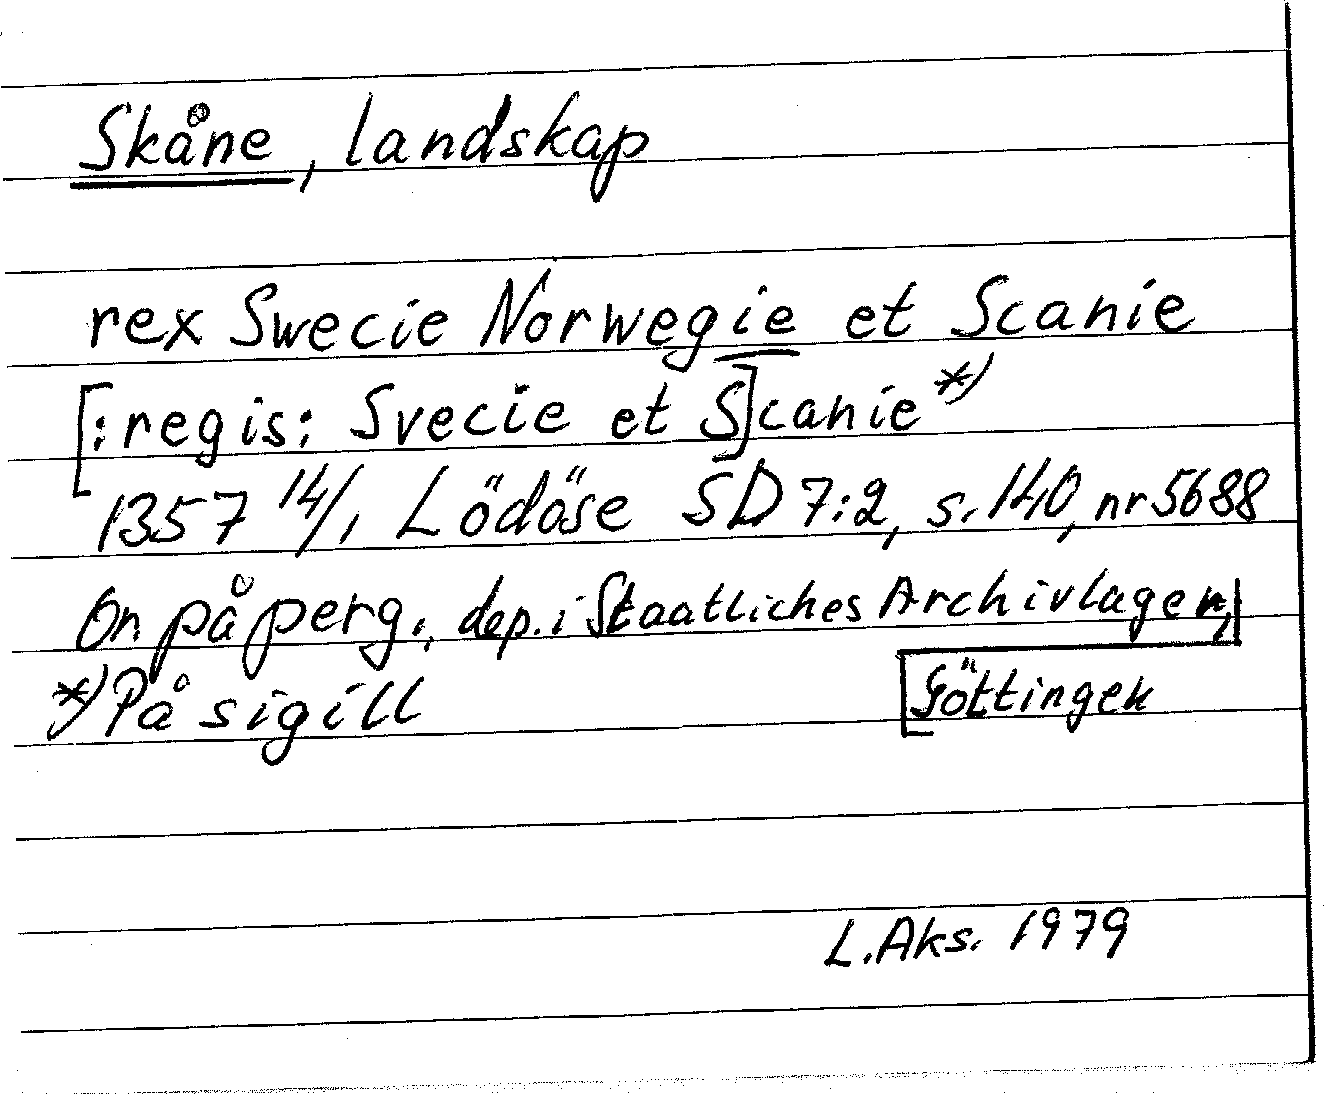 Skåne, landskap
rex Swecie Norwegie et Scanie
[:regis: Svecie et S]canie*)
1357 14/1 Lödöse SD 7:2, s. 140, nr 5688
On på perg., dep. i Staatliches Archivlager,
*) På sigill [Göttingen
L. Aks. 1979